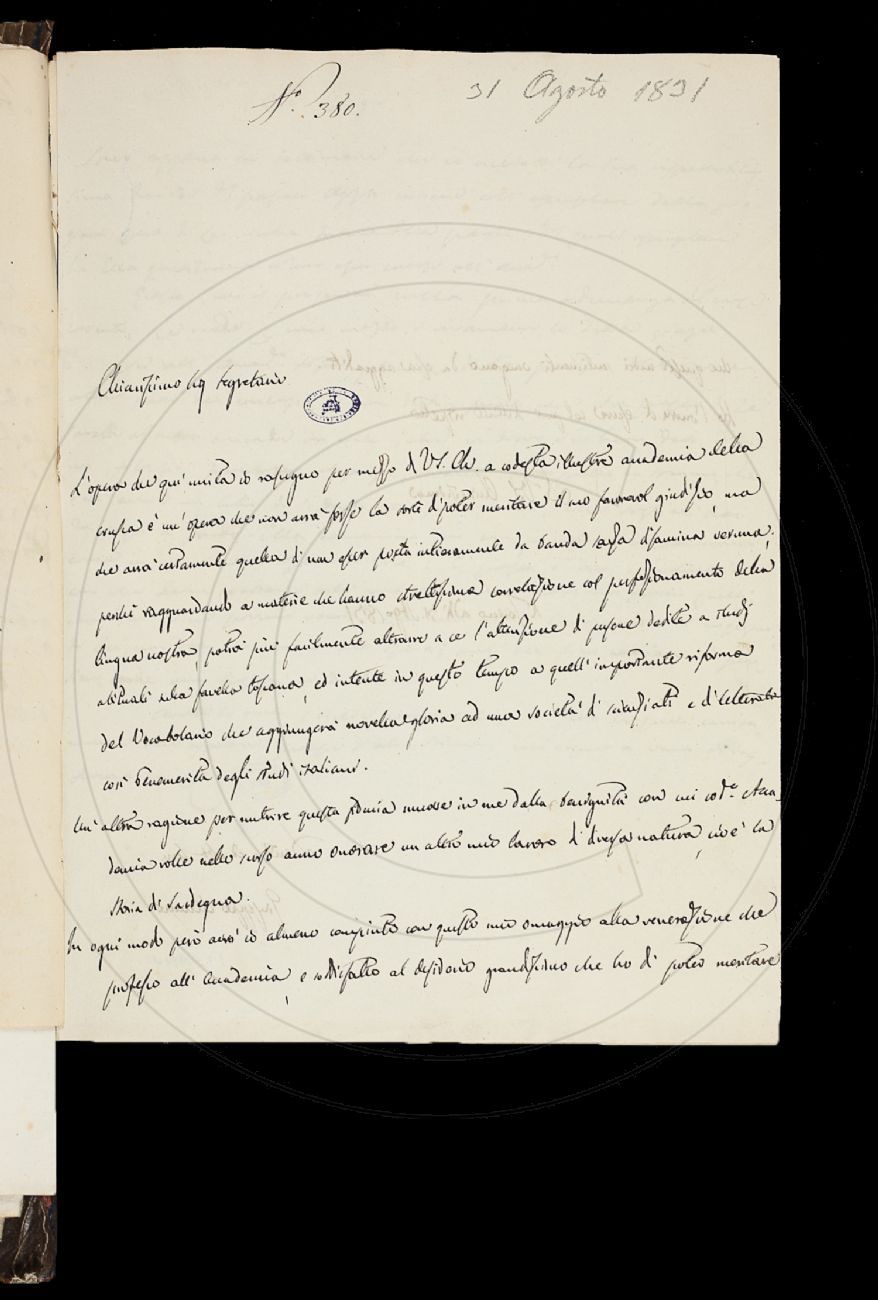 N.° 380.
31 Agosto 1831
Chiarissimo Sig Segretario
L'opera che qui unita io rassegno per mezzo di VS. Ch. a codesta illustre accademia della
crusca è un' opera che non avrà forse la sorte di poter meritare il suo favorevol giudizio, ma
che avrà certamente quella di non esser posta intieramente da banda senza disamina veruna;
perchè ragguardando a materie che hanno strettissima correlazione col perfezionamento della
lingua nostra, potrà più facilmente attrarre a se l'attenzione di persone dedite a studj
abituali sulla favella toscana, ed intente in questo tempo a quell' importante riforma
del Vocabolario che aggiungerà novella gloria ad una società di scienziati e di letterati
così benemerita degli studi italiani.
Un' altra ragione per nutrire questa fiducia muove in me dalla benignità con cui cod.ª Acca-
demia volle nello scorso anno onorare un altro mio lavoro di diversa natura, cioè la
storia di Sardegna.
In ogni modo però avrò io almeno compiuto con questo mio omaggio alla venerazione che
professo all' Accademia, e sodisfatto al desiderio grandissimo che ho di poter meritare